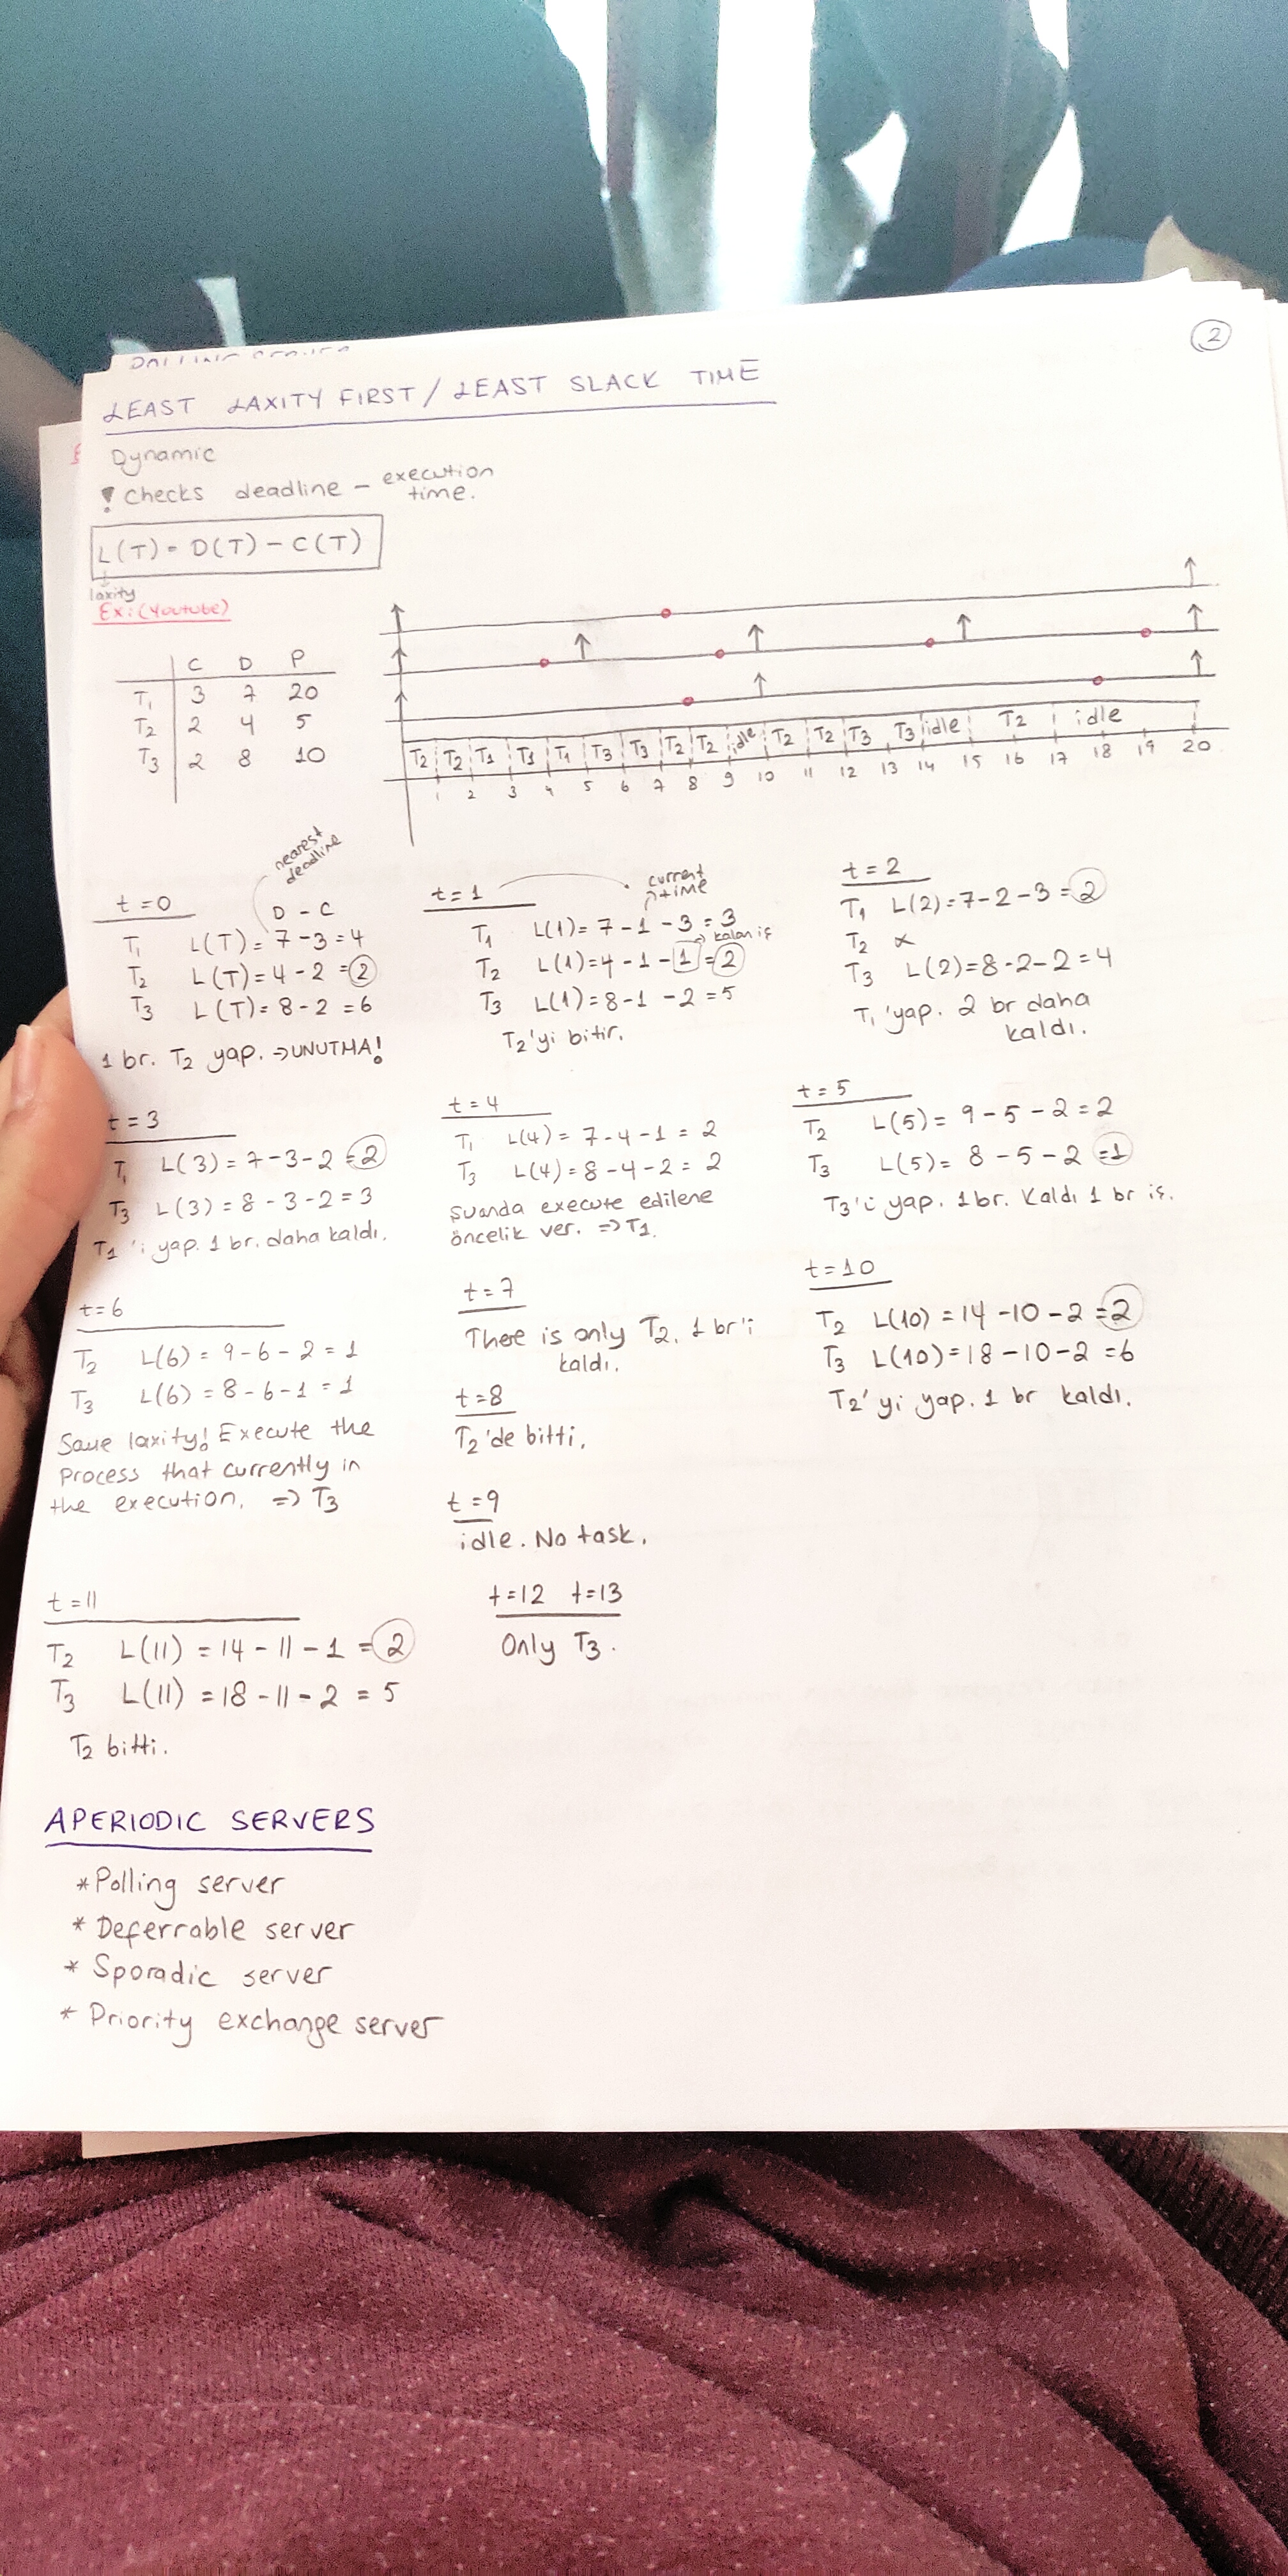 2
LEAST LAXITY FIRST / LEAST SLACK TIME
Dynamic
! Checks deadline - execution time.
L(T) = D(T) - C(T)
laxity
Ex: (Youtube)
C D P
T1 3 7 20
T2 2 4 5
T3 2 8 10
T2 T2 T1 T1 T1 T3 T3 T2 T2 idle T2 T2 T3 T3 idle T2 idle
1 2 3 4 5 6 7 8 9 10 11 12 13 14 15 16 17 18 19 20
nearest deadline
t=0
D - C
T1 L(T) = 7-3=4
T2 L(T)=4-2=2
T3 L(T)=8-2=6
1 br. T2 yap. ⇒UNUTMA!
t=1
current time
T1 L(1)=7-1-3=3
kalan iş
T2 L(1)=4-1-1=2
T3 L(1)=8-1-2=5
T2'yi bitir.
t=2
T1 L(2)=7-2-3=2
T2 x
T3 L(2)=8-2-2=4
T1'yap. 2 br daha
kaldı.
t=3
T1 L(3)=7-3-2=2
T3 L(3)=8-3-2=3
T1'i yap. 1 br. daha kaldı.
t=4
T1 L(4)=7-4-1=2
T3 L(4)=8-4-2=2
Şuanda execute edilene
öncelik ver. ⇒T1.
t=5
T2 L(5)=9-5-2=2
T3 L(5)=8-5-2=1
T3'ü yap. 1br. Kaldı 1 br iş.
t=6
T2 L(6)=9-6-2=1
T3 L(6)=8-6-1=1
Same laxity! Execute the
process that currently in
the execution. ⇒ T3
t=7
There is only T2. 1 br'i
kaldı.
t=8
T2'de bitti.
t=9
idle. No task.
t=10
T2 L(10)=14-10-2=2
T3 L(10)=18-10-2=6
T2'yi yap. 1 br kaldı.
t=11
T2 L(11)=14-11-1=2
T3 L(11)=18-11-2=5
T2 bitti.
t=12 t=13
Only T3.
APERIODIC SERVERS
*Polling server
* Deferrable server
* Sporadic server
* Priority exchange server